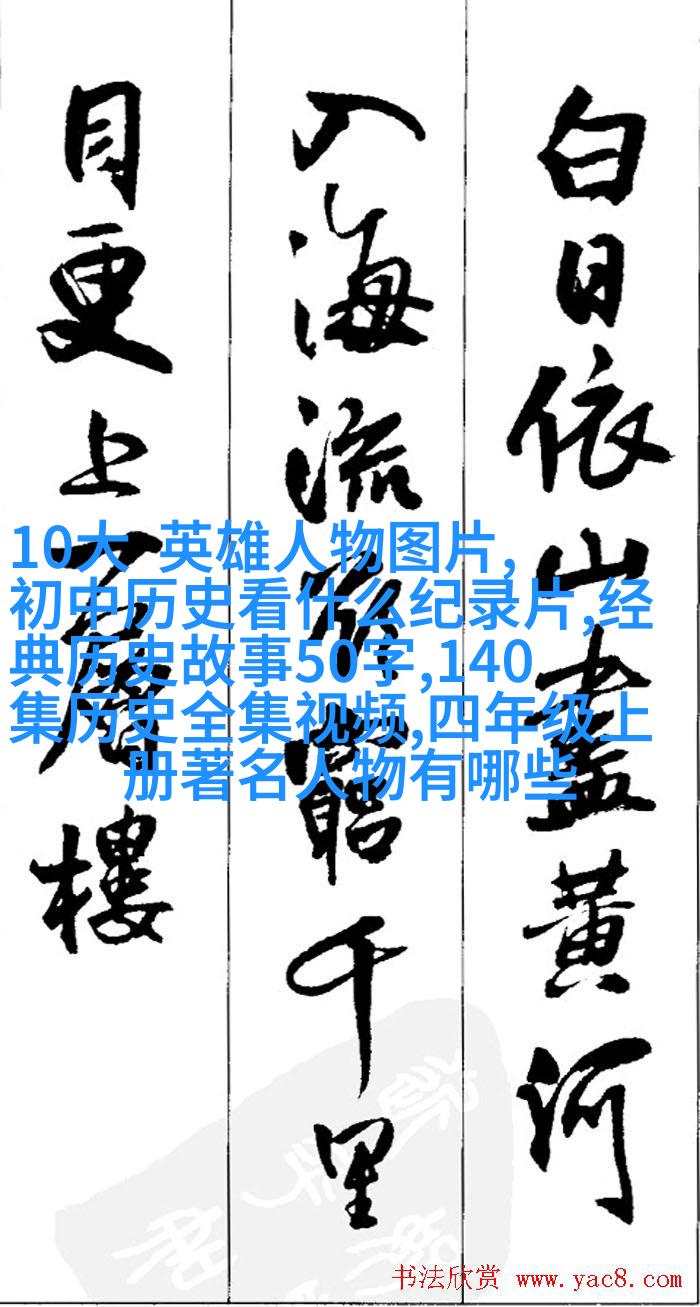 白日依山盡黄河
入海流欲窮千里
目更上一層樓
10大 英雄人物图片,
初中历史看什么纪录片,经
典历史故事50字,140
集历史全集视频,四年级上
册著名人物有哪些
书法欣赏 www.yac8.com